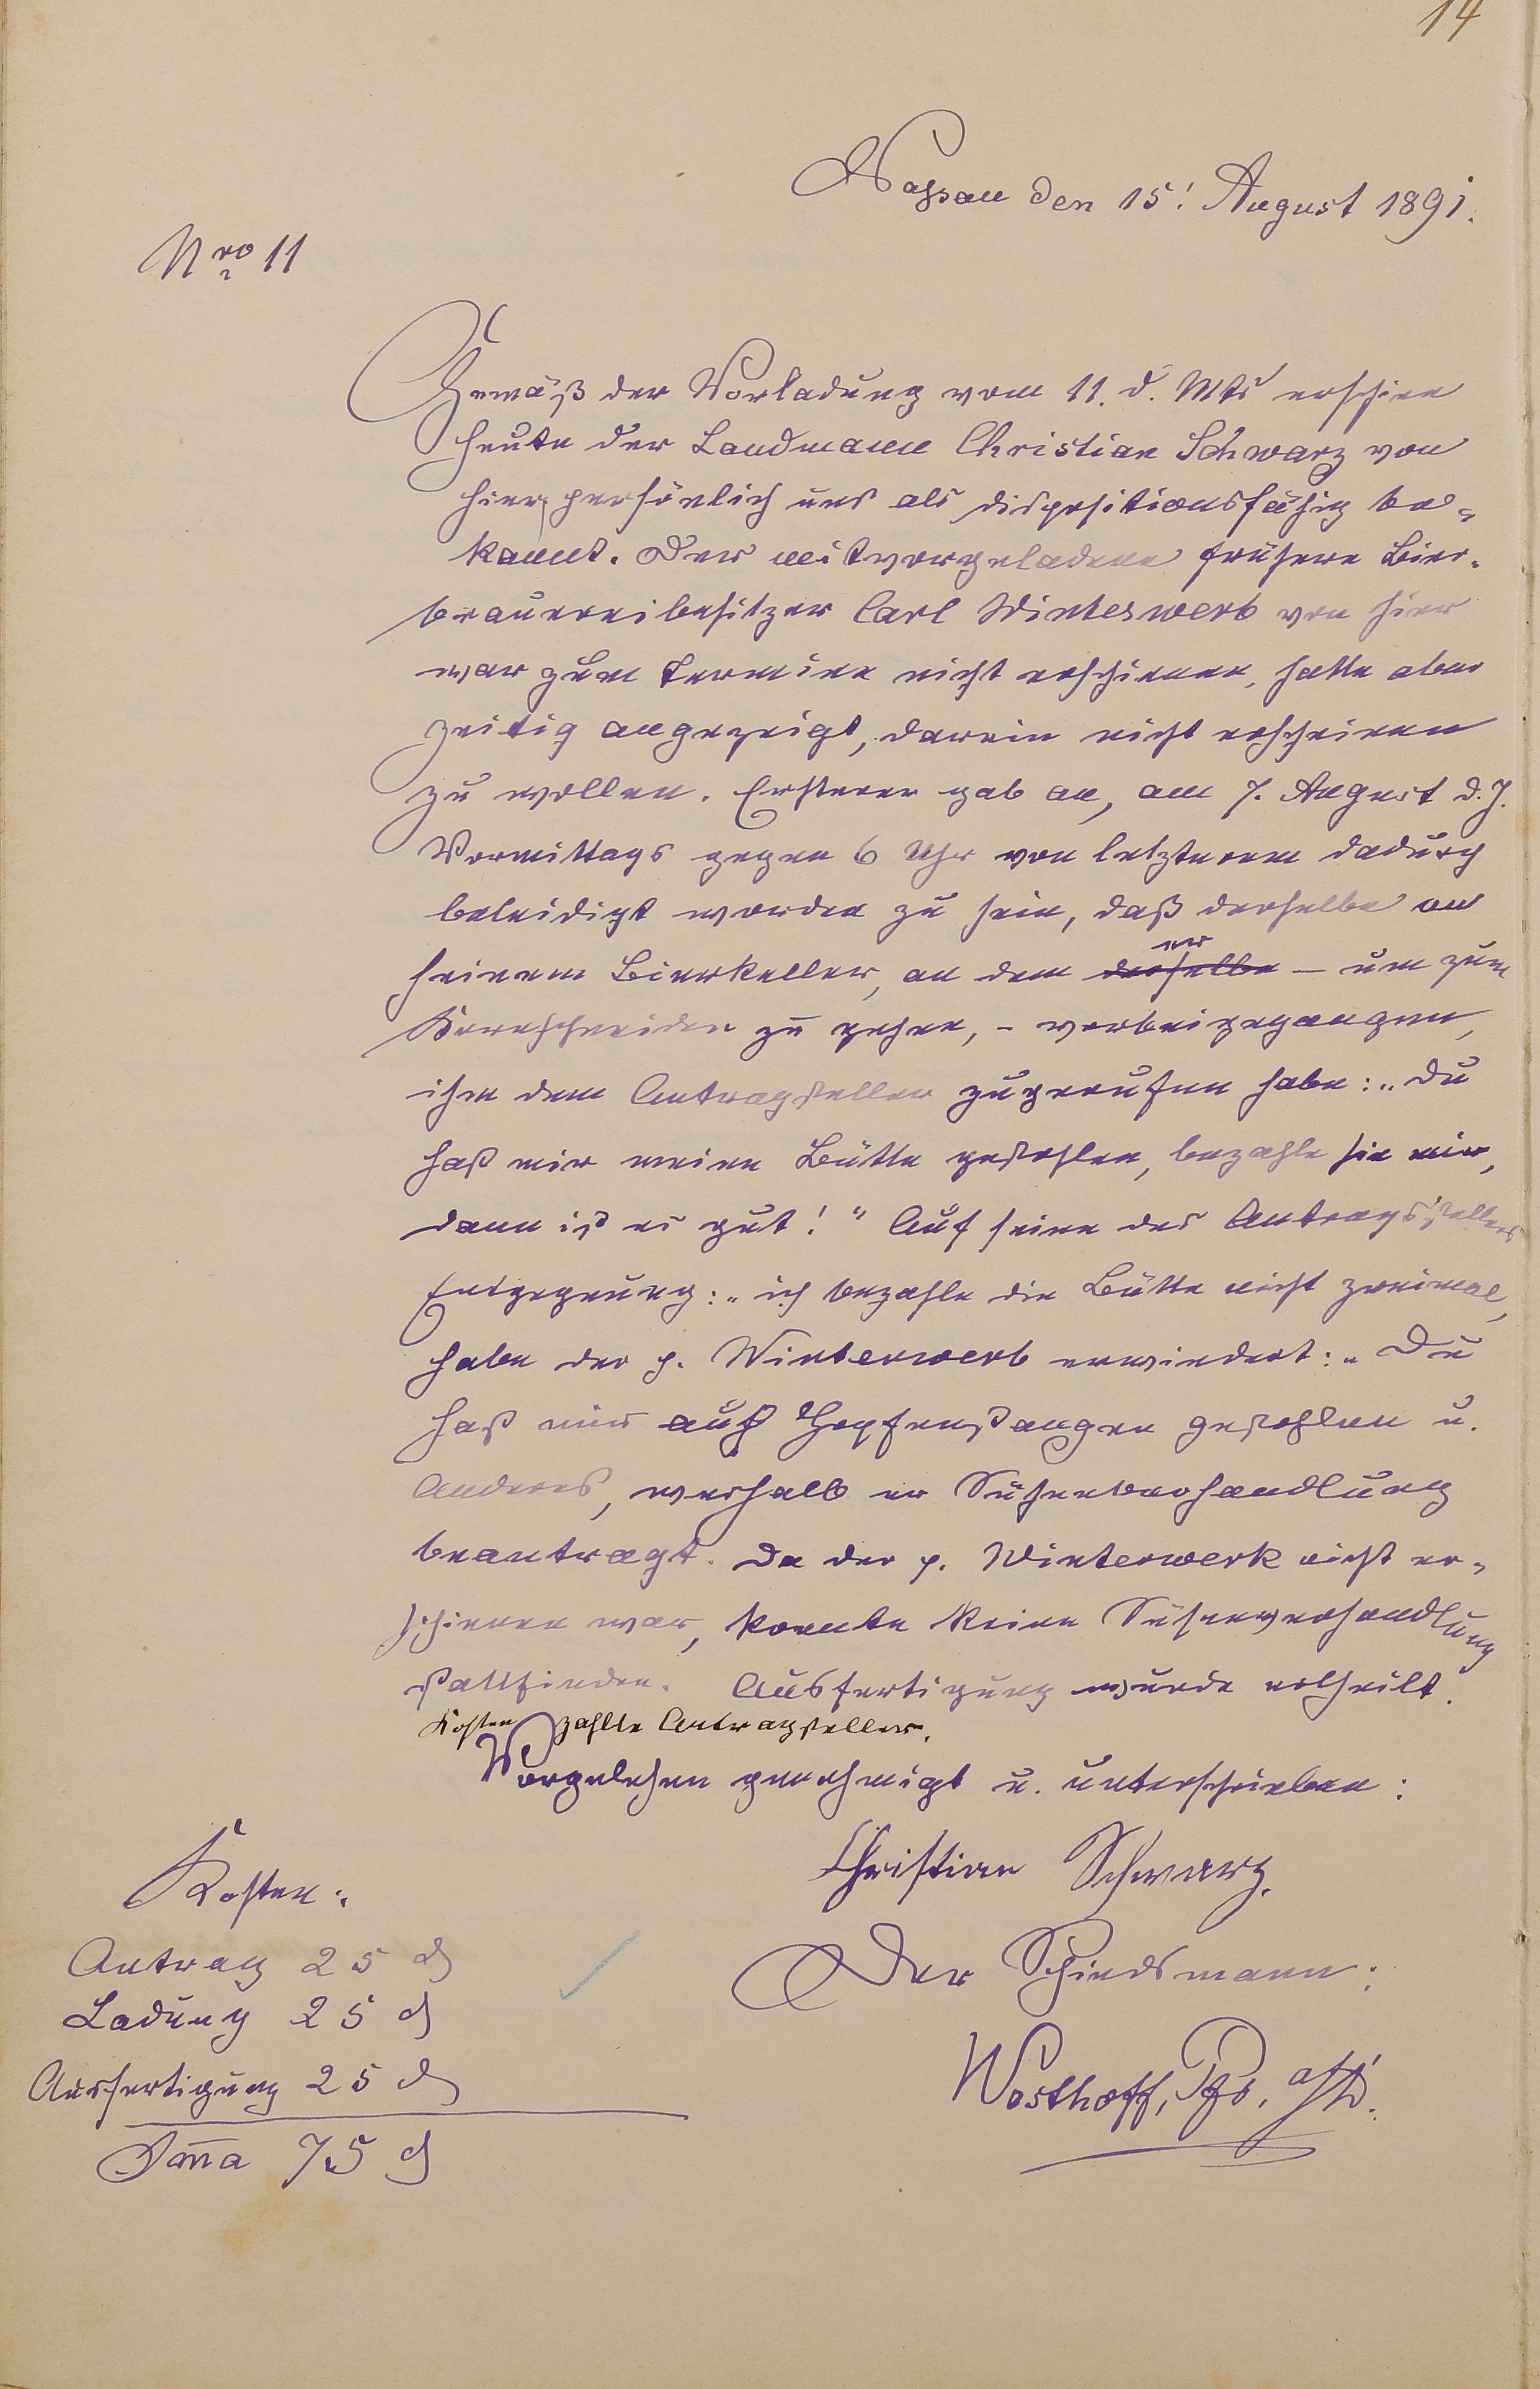 14
Nassau den 15. August 1891.
Nro 11
Gemäß der Vorladung vom 11. d. Mts erschien
heute der Landmann Christian Schwarz von
hier, persönlich uns als dispositionsfähig be-
kannt. Der mitvorgeladene frühere Bier-
brauereibesitzer Carl Winterwerb von hier
war zum Termine nicht erschienen, hatte aber
zeitig angezeigt, darein nicht erscheinen
zu wollen. Ersterer gab an, am 7. August d. J.
Vormittags gegen 6 Uhr von letzterem dadurch
beleidigt worden zu sein, daß derselbe an
seinem Bierkeller, an dem derselbe er – um zum
Kornschneiden zu gehen, – vorbeigegangen,
ihm dem Antragsteller zugerufen habe: „Du
hast mir meine Bütte gestohlen, bezahle sie mir,
dann ist es gut!“ Auf seine des Antragsstellers
Entgegnung: „ich bezahle die Bütte nicht zweimal,
habe der p. Winterwerb erwiedert: „Du
hast mir auch Hopfenstangen gestohlen u.
Anderes, weshalb er Sühneverhandlung
beantragt. Da der p. Winterwerb nicht er-
schienen war, konnte keine Sühneverhandlung
stattfinden. Ausfertigung wurde ertheilt.
Kosten zahlte Antragsteller.
Vorgelesen genehmigt u. unterschrieben:
Christian Schwarz.
Der Schiedsmann:
Westhoff,
Kosten:
Antrag 25 ₰
Ladung 25 ₰
Ausfertigung 25 ₰
Sma 75 ₰